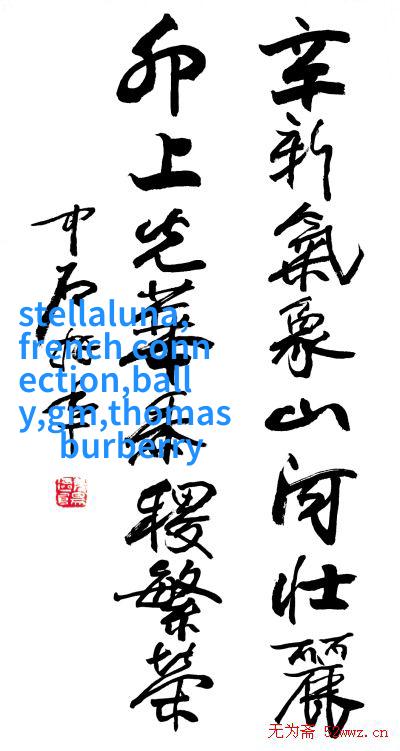 辛新氣象山河壮麗
卯上光華稷繁榮
中石
stellaluna,
french conn
ection,ball
y,gm,thomas
burberry
无为斋 52wwz.cn